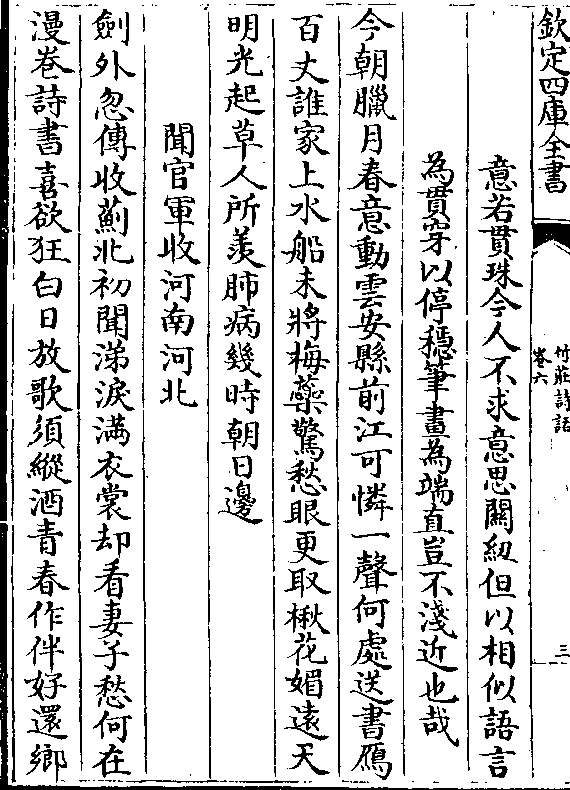 欽定四庫全書
竹莊詩話
卷六
三
意若貫珠今人不求意思關紐但以相似語言
為貫穿以停穩筆畫為端直豈不淺近也哉
今朝臘月春意動雲安縣前江可憐一聲何處送書鴈
百丈誰家上水船未將梅蘂驚愁眼更取楸花媚逺天
明光起草人所羡肺病幾時朝日邊
聞官軍收河南河北
劍外忽傳收薊北初聞涕淚满衣裳却看妻子愁何在
漫巻詩書喜欲狂白日放歌須縱酒青春作伴好還鄉